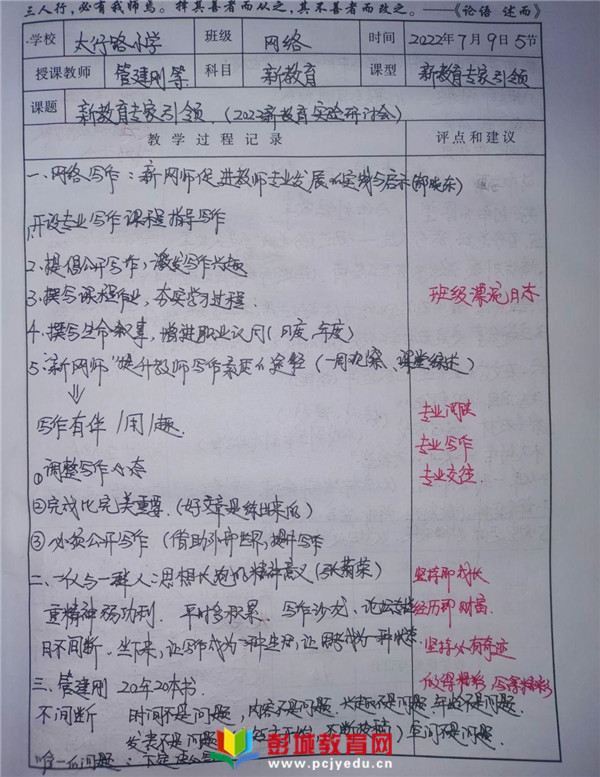 三人行，必有我师焉。择其善者而从之，其不善者而改之。——《论语 述而》
学校 太行路小学 班级 网络 时间 2022年7月9日5节
授课教师 管建刚等 科目 新教育 课型 新教育专家引领
课题 新教育专家引领。（2022新教育实验研讨会）
教学过程记录 评点和建议
一、网络写作：新网师促进教师专业发展的实践与启示
1.开设专业写作课程指导写作
2.提倡公开写作，激发写作兴趣
3.撰写课程作业，夯实学习过程
班级漂流日志
4.撰写生命叙事，增进职业认同（月度、年度）
5."新网师"提升教师写作素养的途径（一周观察、课堂综述）
⇓
写作有伴/用/趣
专业阅读
专业写作
专业交往
①调整写作心态
②完成比完美重要（好文章是练出来的）
③必须公开写作（借助外部世界，提升写作
二、一个人与一群人：思想长跑的精神意义（张菊荣）
坚持即成长
重精神弱功利 平时多积累 写作沙龙、论坛
经历即财富
日不间断 坐下来，让写作成为一种生活，让思考成为一种状态
坚持必有奇迹
做得精彩，写得精彩
三、管建刚 20年20本书
不间断 时间不是问题，内容不是问题，兴趣不是问题，年龄不是问题
发表不是问题 不断改稿）空间不是问题
唯一的问题：
彭城教育网
www.pcjyedu.cn